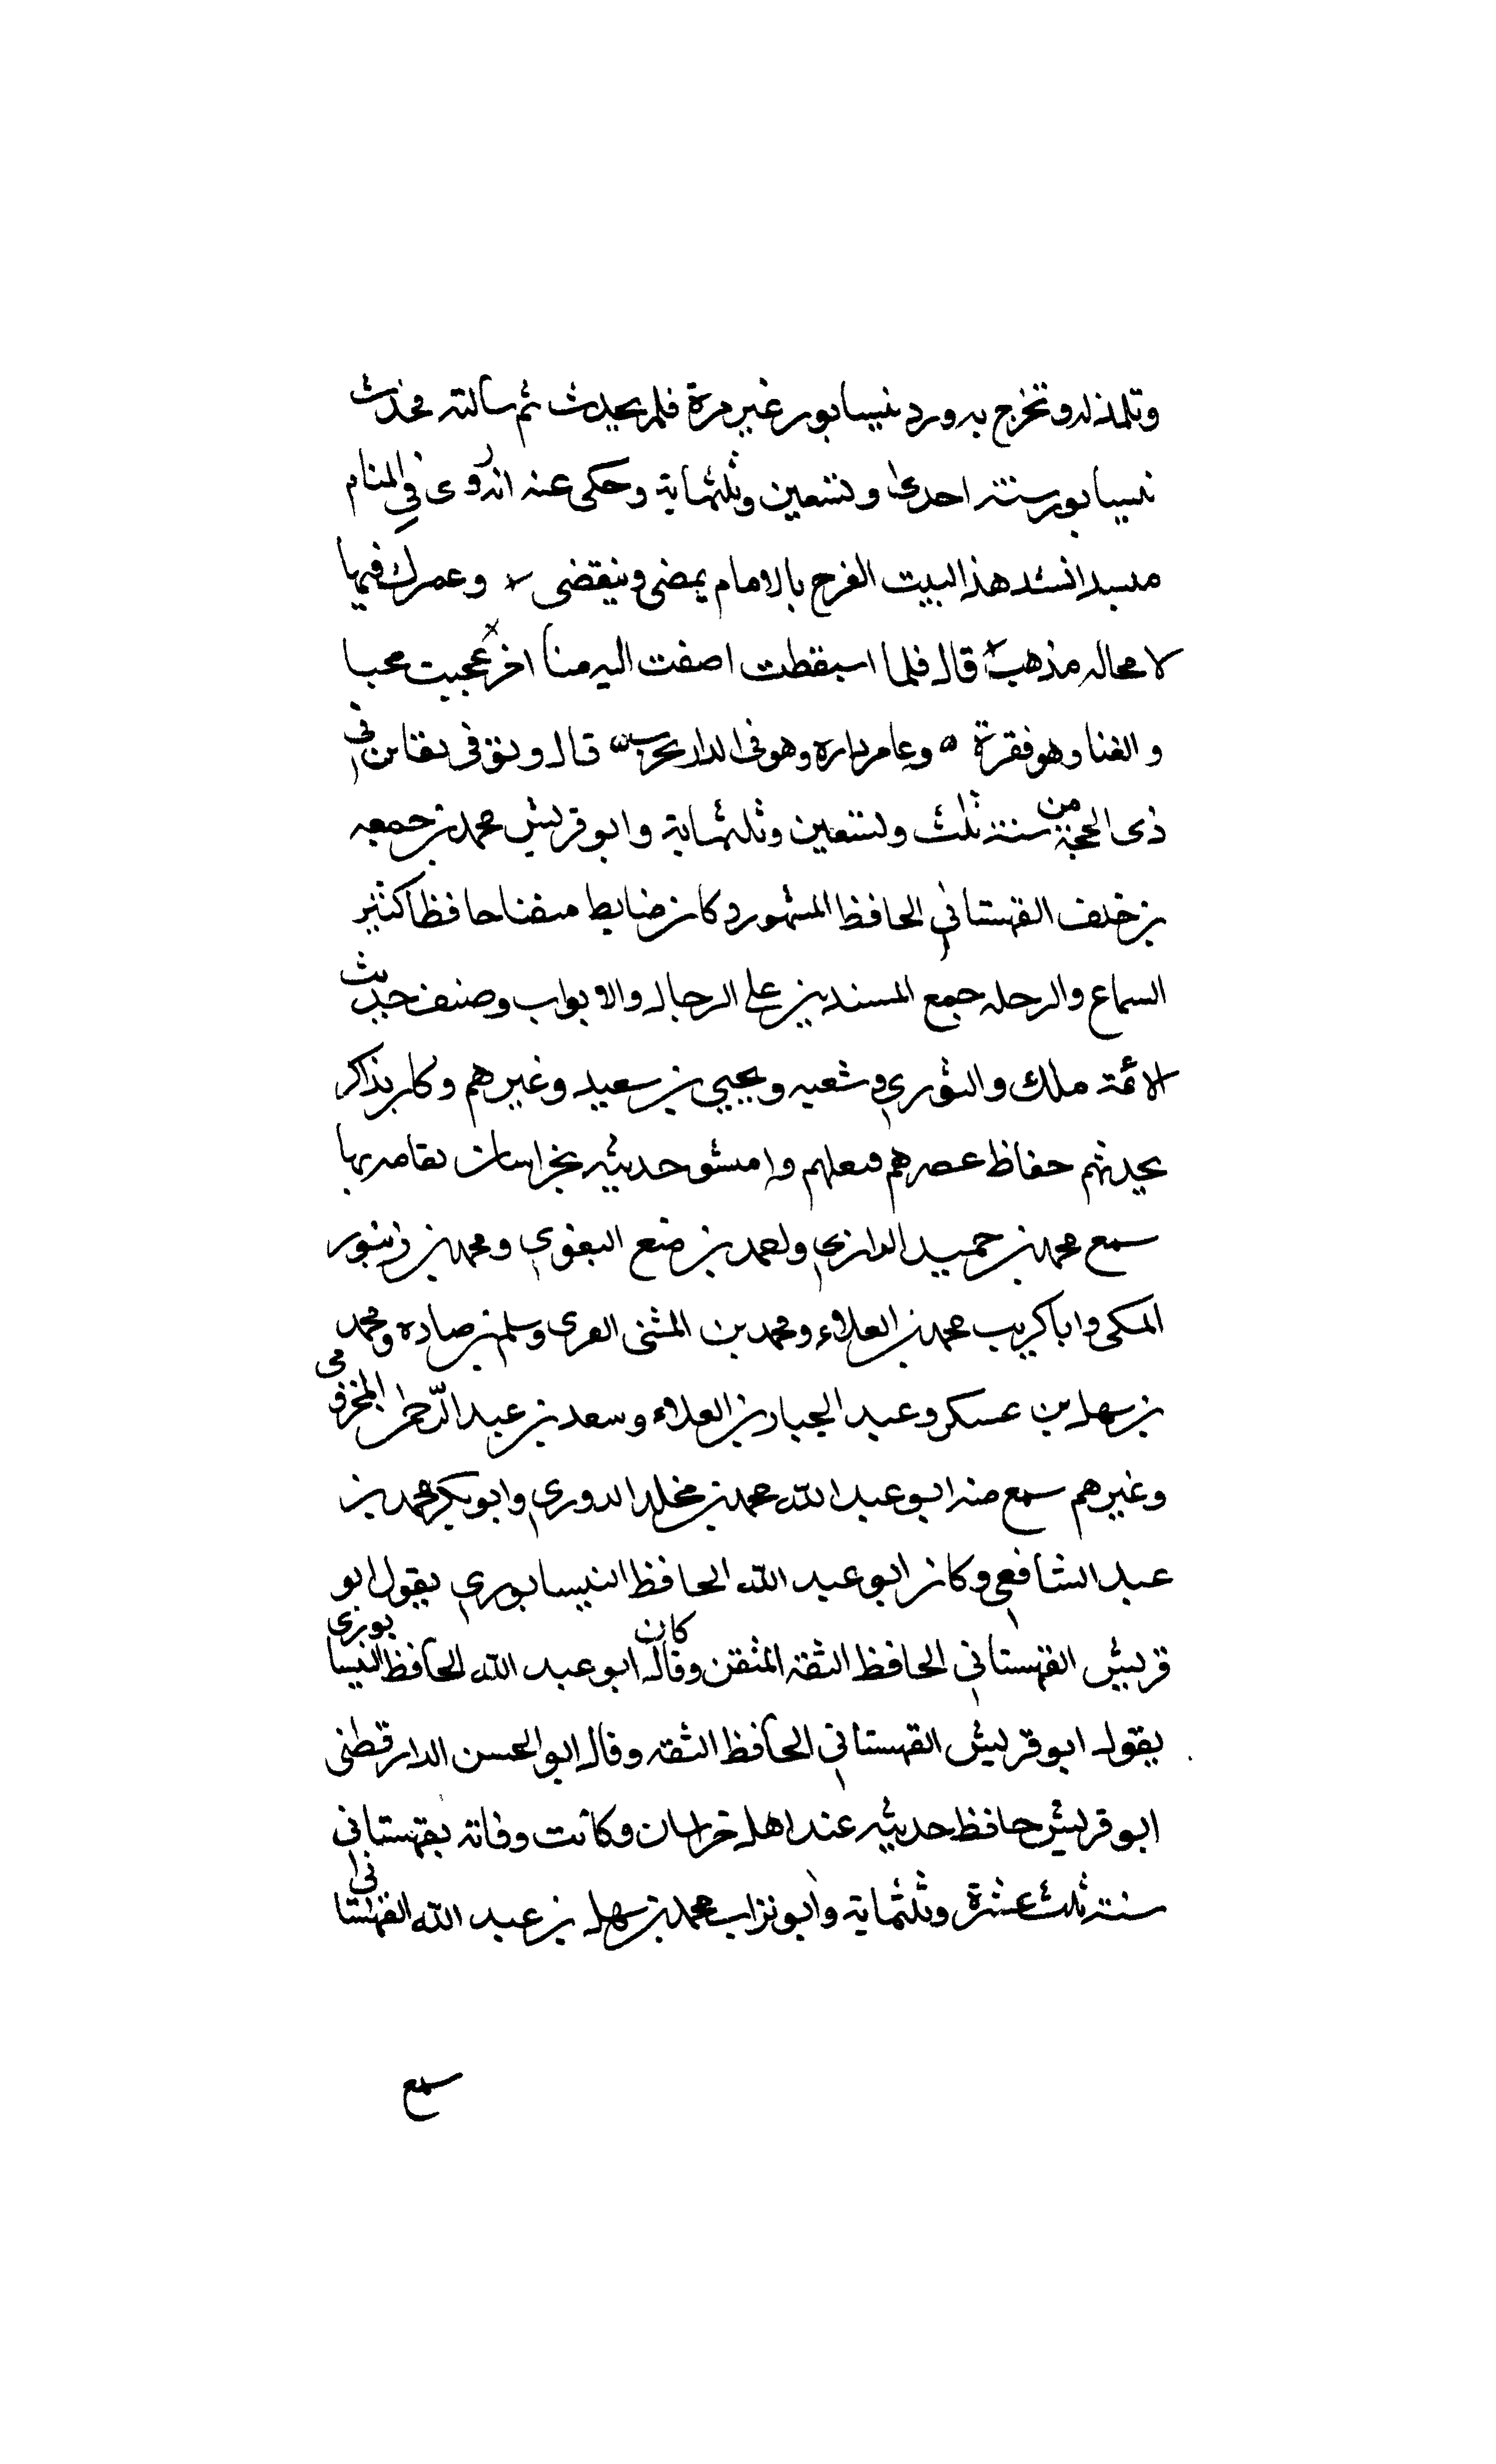 وتلمذ له وتخرج به وورد نيسابور غير مرة فلم يحدث ثم سالته فحدث
نيسابور سنة احدى وتسعين وثلثماية وحكى عنه انه روى في المنام
انشد هذا البيت الفرح بالامام يمضى وينقضى وعمرك فيها
لا محاله مذهب قال فلما اضفت اليه منا اخر عجبت محبا
والغنا وهو فقرة وعامر داره وهو فى الدار يخرب قال وتوفى بقاين فى
ذى الحجة من سنة ثلث وتسعين وثلثماية وابو قريش محمد بن جمعه
بن خلف القهستانى الحافظ المشهور وكان ضابطا متقنا حافظا كثير
السماع والرحله جمع المسندين على الرجال والابواب وصنف حديث
الائمة ملك والثورى وشعبه ويحيي بن سعيد وغيرهم وكان يذاكر
بحديثهم حفاظ عصرهم حديثه بخراسان
سمع محمد بن حميد الرازى واحمد بن منع البغوى ومحمد بن زنبور
المكى وابا كريب محمد بن العلاء ومحمد بن المثنى العرى وسلم بن صاده ومحمد
بن سهل بن عسكر وعبد الجبار بن العلاء وسعد بن عبد الرحمن المخزومى
وغيرهم سمع منه ابو عبد الله محمد بن مخلد الدورى وابو بكر محمد بن
عبد الشافعى وكان ابو عبد الله الحافظ النيسابورى يقول ابو
قريش القهستانى الحافظ الثقه المثقن وقال كان ابو عبد الله الحافظ النيسابورى
يقول ابو قريش القهستانى الحافظ الثقه وقال ابو الحسن الدارقطنى
ابو قريش حافظ حديثه عند اهل خراسان وكانت وفاته بقهستانى
سنة ثلث عشرة وثلثماية وابو تراب محمد بن سهل بن عبد الله القهستانى
سمع